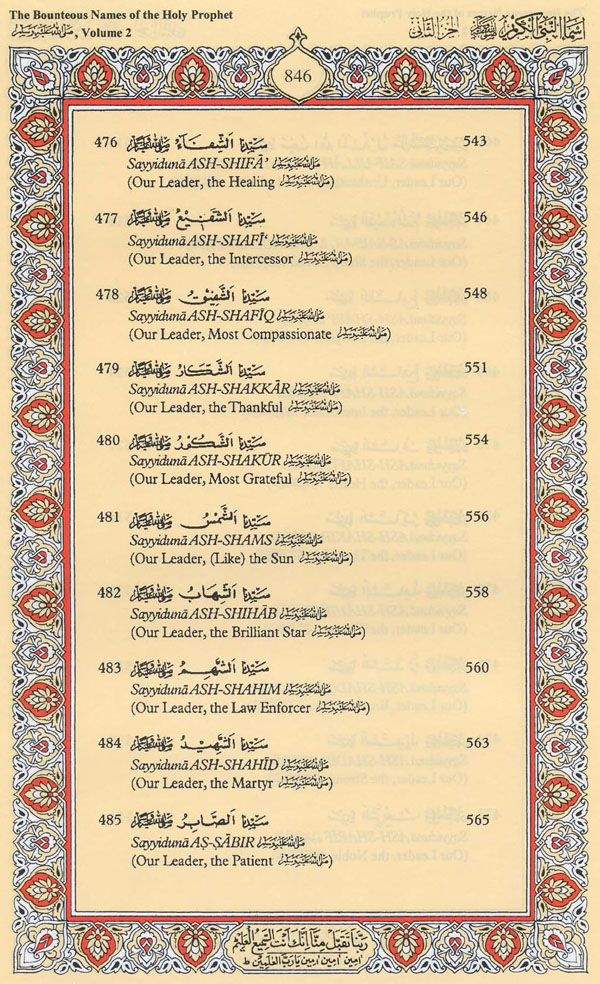 The Bounteous Names of the Holy Prophet
ﷺ, Volume 2
أسماء النبي الكريم ﷺ الجزء الثاني
846
476 سيدنا الشفاء ﷺ 543
Sayyidunā ASH-SHIFĀ’ ﷺ
(Our Leader, the Healing ﷺ)
477 سيدنا الشفيع ﷺ 546
Sayyidunā ASH-SHAFĪ‘ ﷺ
(Our Leader, the Intercessor ﷺ)
478 سيدنا الشفيق ﷺ 548
Sayyidunā ASH-SHAFĪQ ﷺ
(Our Leader, Most Compassionate ﷺ)
479 سيدنا الشكار ﷺ 551
Sayyidunā ASH-SHAKKĀR ﷺ
(Our Leader, the Thankful ﷺ)
480 سيدنا الشكور ﷺ 554
Sayyidunā ASH-SHAKŪR ﷺ
(Our Leader, Most Grateful ﷺ)
481 سيدنا الشمس ﷺ 556
Sayyidunā ASH-SHAMS ﷺ
(Our Leader, (Like) the Sun ﷺ)
482 سيدنا الشهاب ﷺ 558
Sayyidunā ASH-SHIHĀB ﷺ
(Our Leader, the Brilliant Star ﷺ)
483 سيدنا الشهم ﷺ 560
Sayyidunā ASH-SHAHIM ﷺ
(Our Leader, the Law Enforcer ﷺ)
484 سيدنا الشهيد ﷺ 563
Sayyidunā ASH-SHAHĪD ﷺ
(Our Leader, the Martyr ﷺ)
485 سيدنا الصابر ﷺ 565
Sayyidunā AṢ-ṢĀBIR ﷺ
(Our Leader, the Patient ﷺ)
ربنا تقبل منا انك انت السميع العليم
امين امين امين يارب العلمين ط